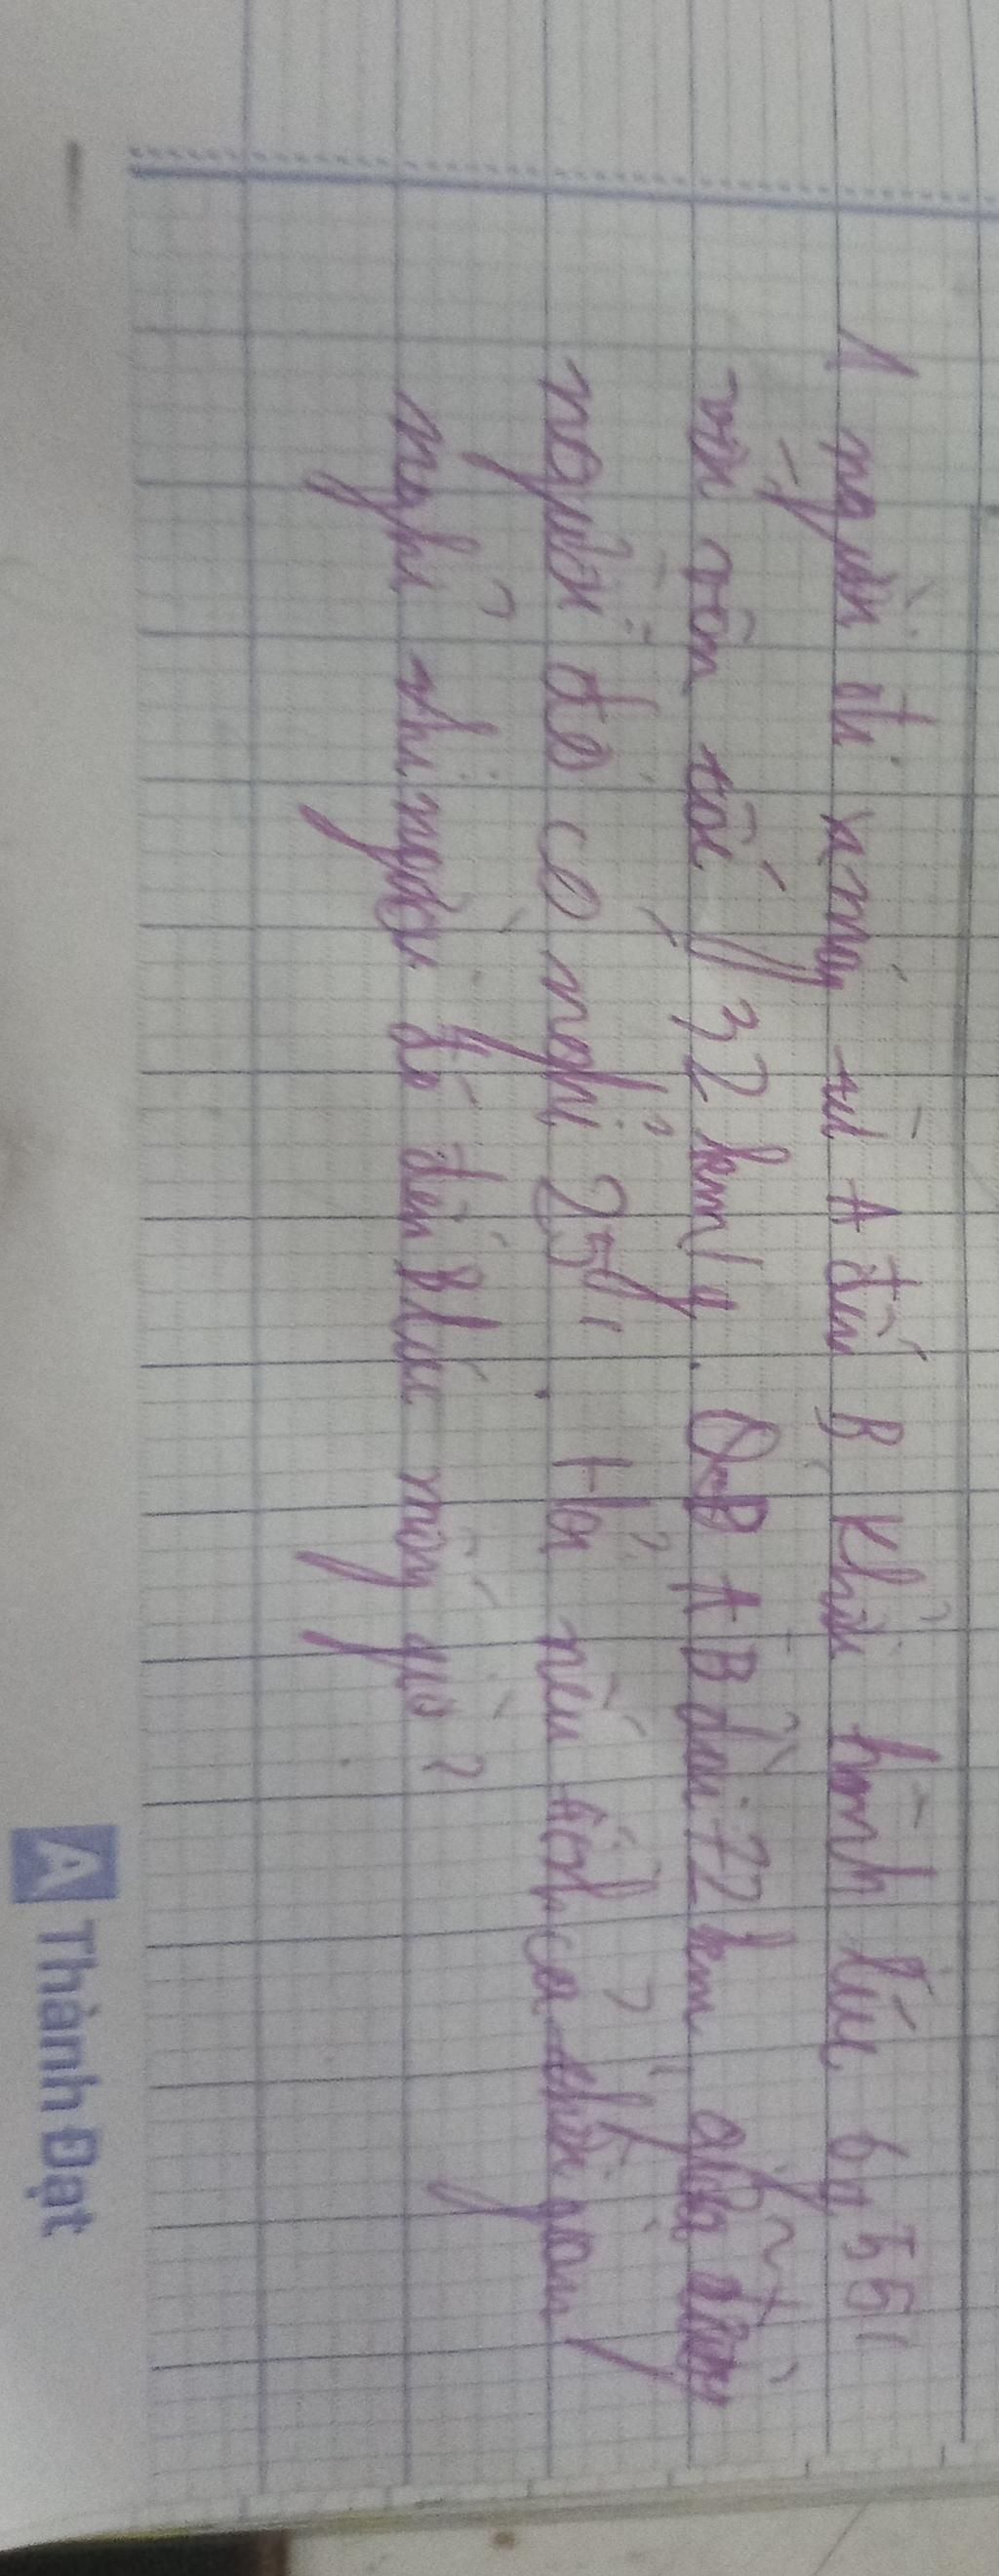 1 người đi xmáy từ A đến B khởi hành lúc 6g 55'
với vận tốc 32 km/g. QĐ AB dài 72 km, giữa đường
người đó có nghỉ 25'. Hỏi nếu tính cả thời gian
nghỉ thì người đó đến B lúc mấy giờ?
A Thành Đạt